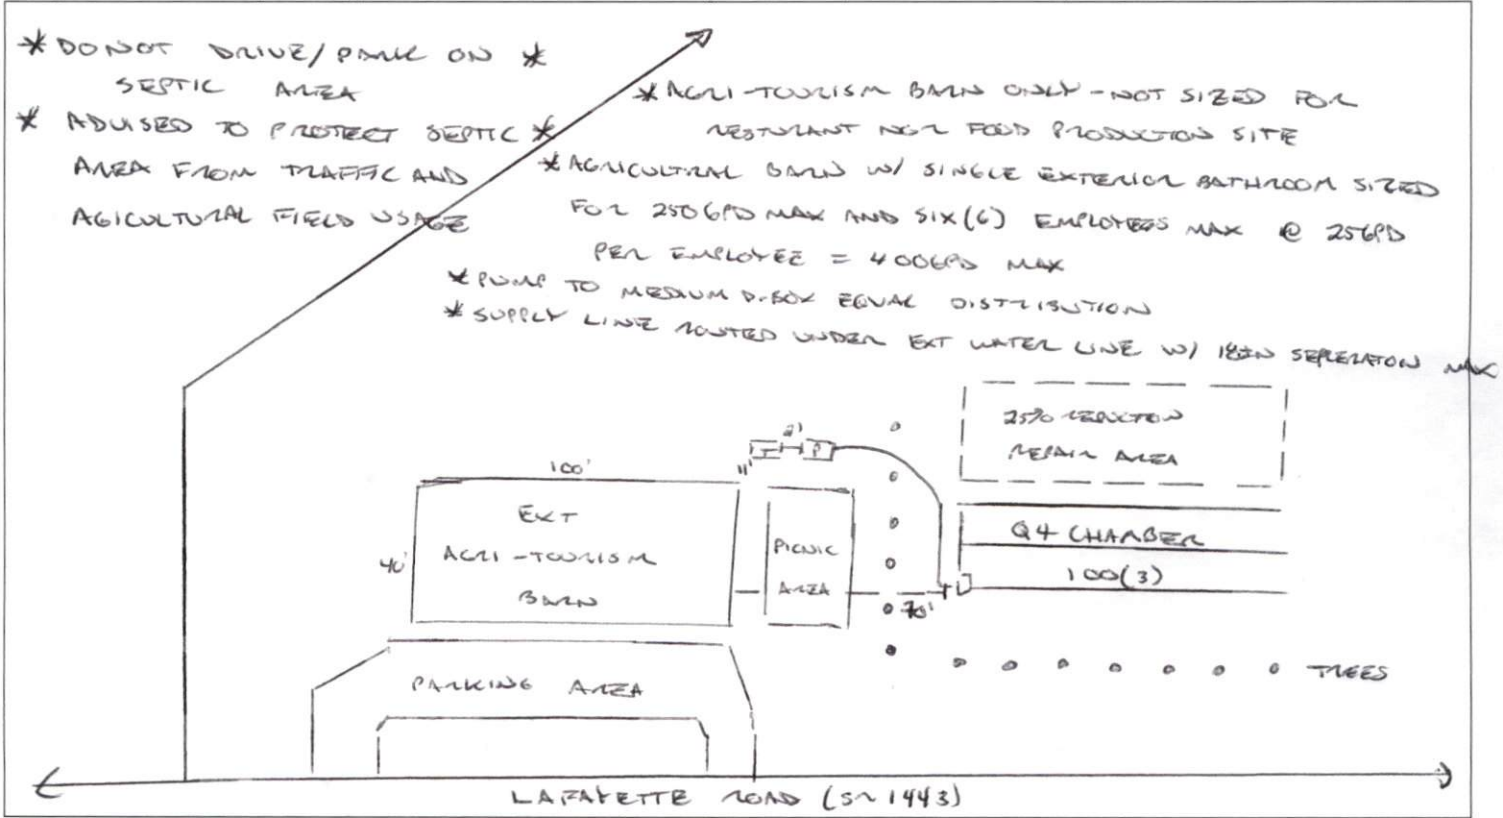 * DO NOT DRIVE/PARK ON *
SEPTIC AREA
* ADVISED TO PROTECT SEPTIC *
AREA FROM TRAFFIC AND
AGICULTURAL FIELD USAGE
* AGRI-TOURISM BARN ONLY - NOT SIZED FOR
RESTURANT NOR FOOD PRODUCTION SITE
* AGRICULTRAL BARN W/ SINGLE EXTERIOR BATHROOM SIZED
FOR 250GPD MAX AND SIX(6) EMPLOYEES MAX @ 25GPD
PER EMPLOYEE = 400GPD MAX
* PUMP TO MEDIUM D-BOX EQUAL DISTRIBUTION
* SUPPLY LINE ROUTED UNDER EXT WATER LINE W/ 18IN SEPERATON MAX
25% REDUCTION
REPAIR AREA
2'
T P
11'
100'
40'
EXT
AGRI-TOURISM
BARN
PICNIC
AREA
Q4 CHAMBER
100(3)
70'
TREES
PARKING AREA
LAFAYETTE ROAD (SR 1443)